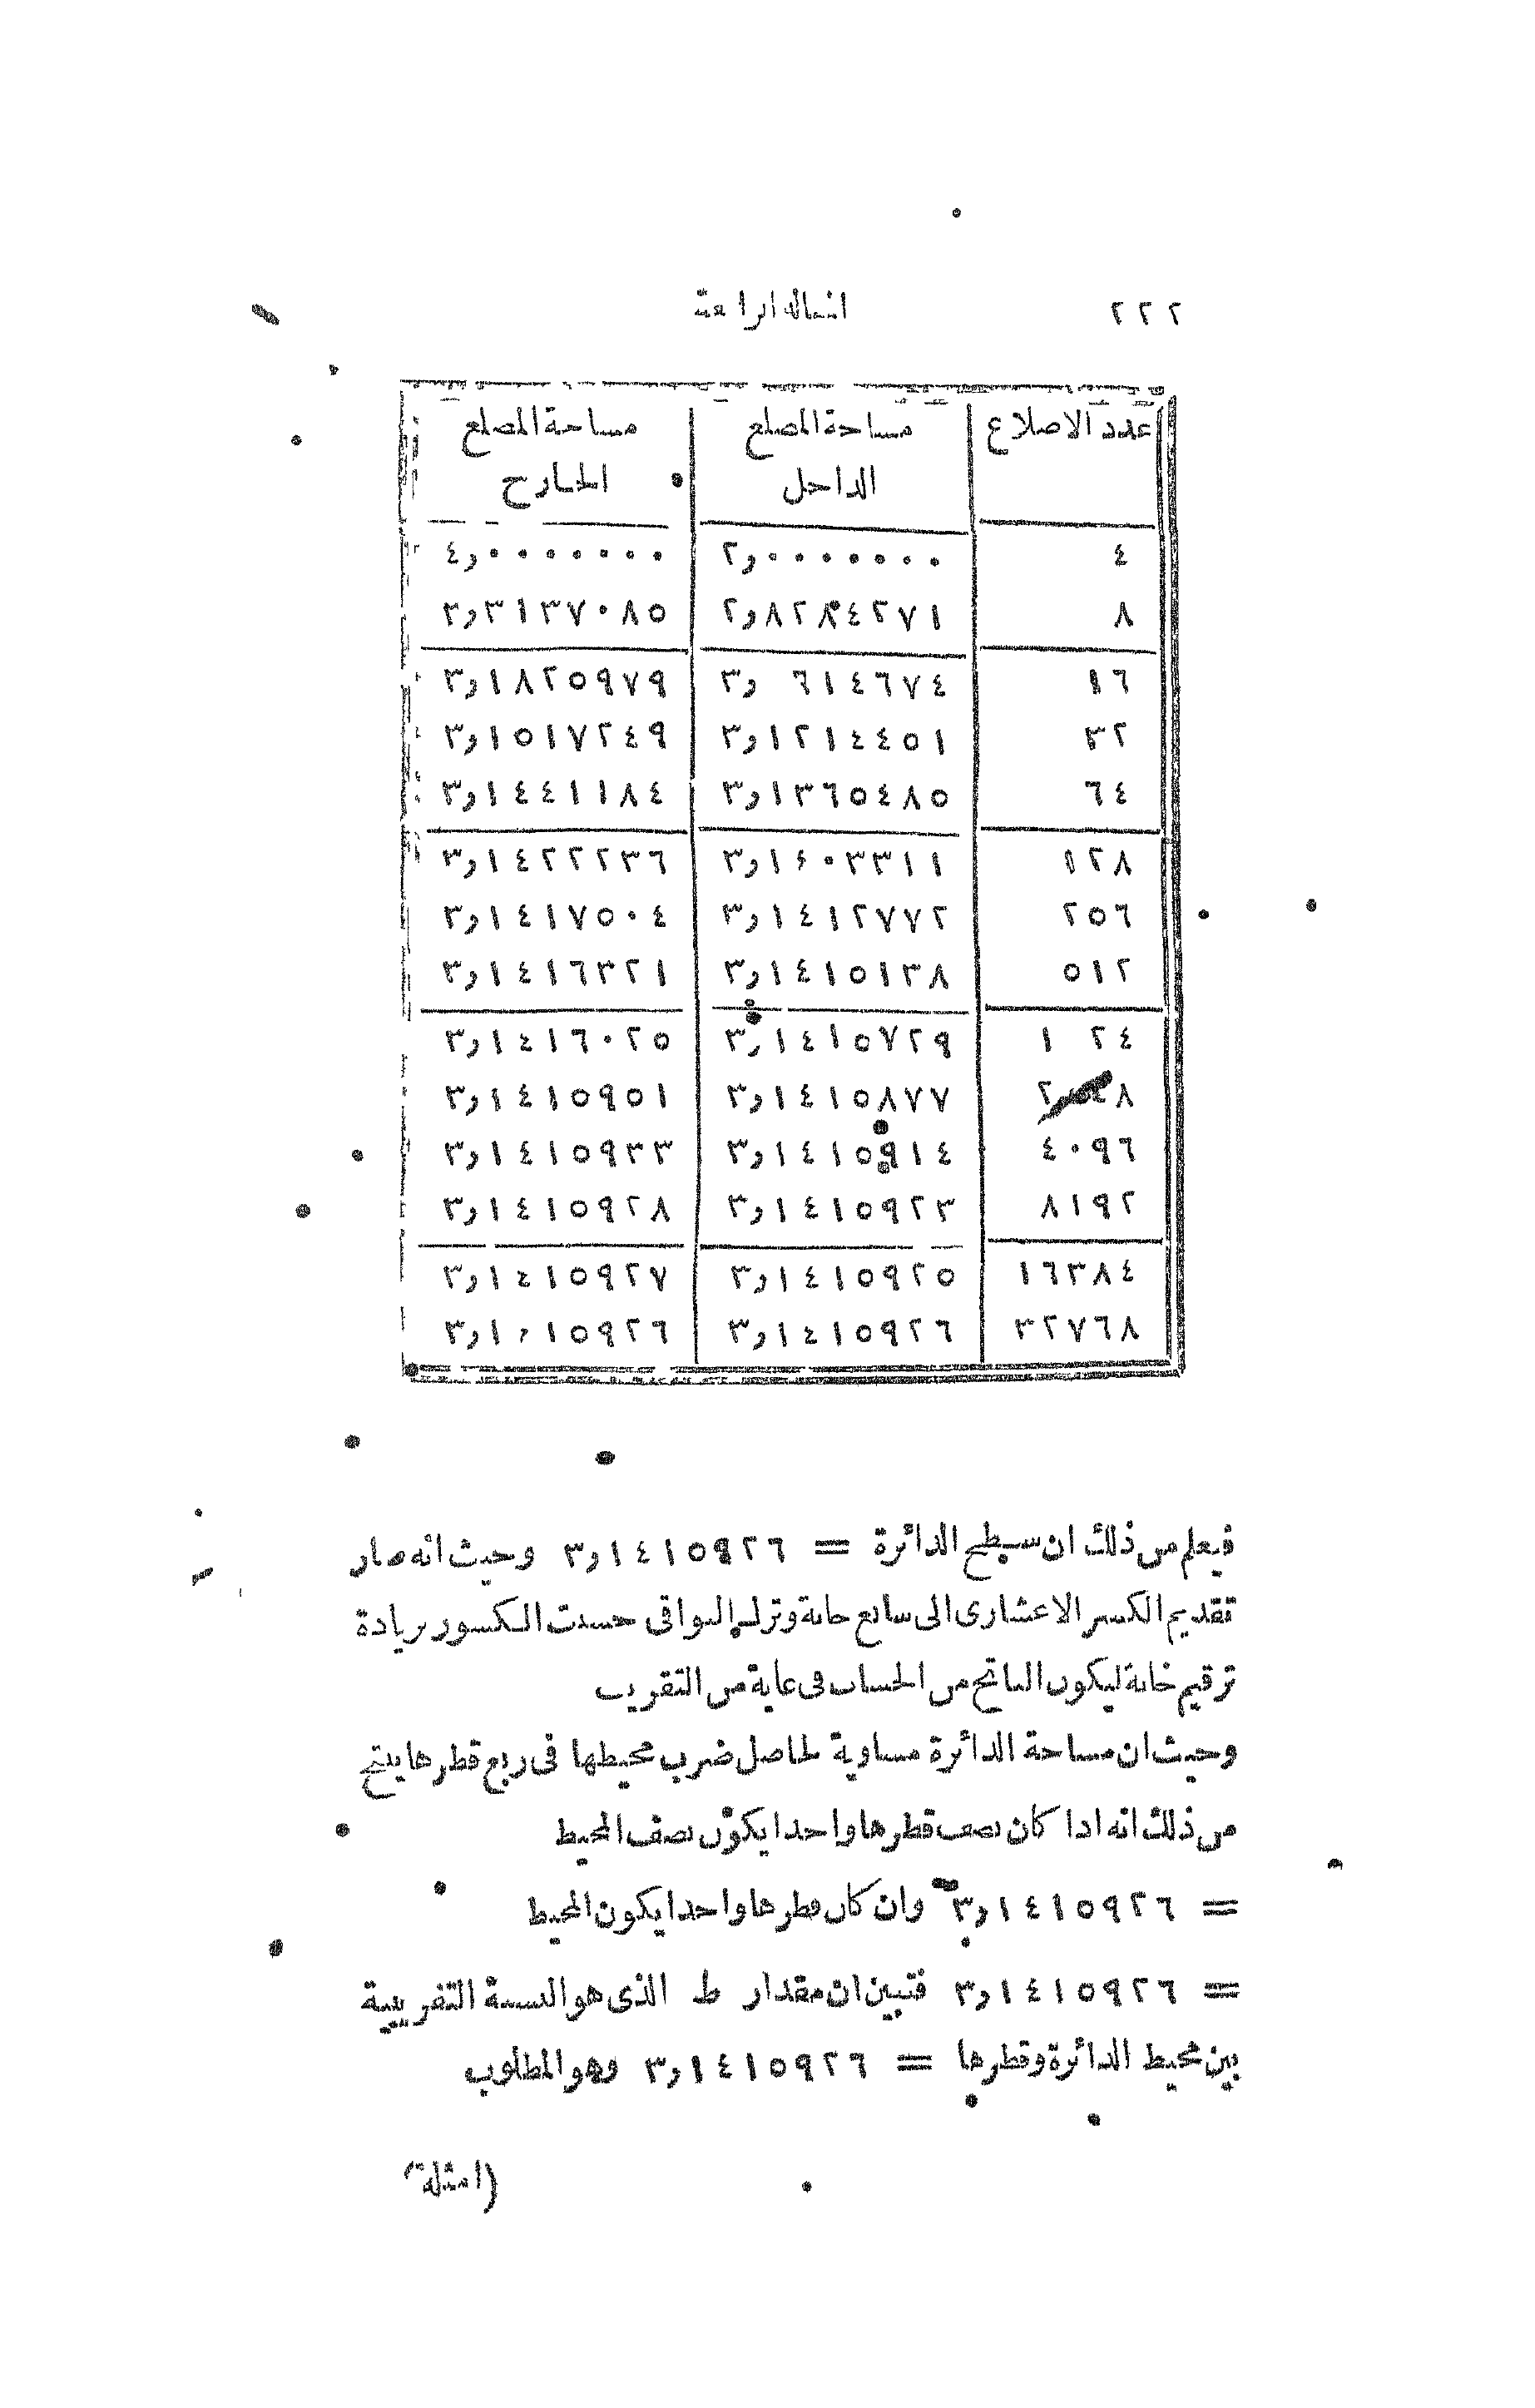 ٢٢٢ المقالة الرابعة
عدد الاضلاع مساحة المضلع مساحة المضلع
الداخل الخارج
٤ ٢,٠٠٠٠٠٠٠ ٤,٠٠٠٠٠٠٠
٨ ٢,٨٢٨٤٢٧١ ٣,٣١٣٧٠٨٥
١٦ ٣, ٦١٤٦٧٤ ٣,١٨٢٥٩٧٩
٣٢ ٣,١٢١٤٤٥١ ٣,١٥١٧٢٤٩
٦٤ ٣,١٣٦٥٤٨٥ ٣,١٤٤١١٨٤
١٢٨ ٣,١٤٠٣٣١١ ٣,١٤٢٢٢٣٦
٢٥٦ ٣,١٤١٢٧٧٢ ٣,١٤١٧٥٠٤
٥١٢ ٣,١٤١٥١٣٨ ٣,١٤١٦٣٢١
١ ٢٤ ٣,١٤١٥٧٢٩ ٣,١٤١٦٠٢٥
٢٠٤٨ ٣,١٤١٥٨٧٧ ٣,١٤١٥٩٥١
٤٠٩٦ ٣,١٤١٥٩١٤ ٣,١٤١٥٩٣٣
٨١٩٢ ٣,١٤١٥٩٢٣ ٣,١٤١٥٩٢٨
١٦٣٨٤ ٣,١٤١٥٩٢٥ ٣,١٤١٥٩٢٧
٣٢٧٦٨ ٣,١٤١٥٩٢٦ ٣,١٤١٥٩٢٦
فيعلم من ذلك ان سطح الدائرة = ٣,١٤١٥٩٢٦ وحيث انه صار
تقديم الكسر الاعشارى الى سابع خانة وترك البواقى حسبت الكسور بزيادة
ترقيم خانة ليكون الناتج من الحساب فى غاية من التقريب
وحيث ان مساحة الدائرة مساوية لحاصل ضرب محيطها فى ربع قطرها ينتج
من ذلك انه اذا كان نصف قطرها واحدا يكون نصف المحيط
= ٣,١٤١٥٩٢٦ وان كان قطرها واحدا يكون المحيط
= ٣,١٤١٥٩٢٦ فتبين ان مقدار ط الذى هو النسبة التقريبية
بين محيط الدائرة وقطرها = ٣,١٤١٥٩٢٦ وهو المطلوب
(امثلة)